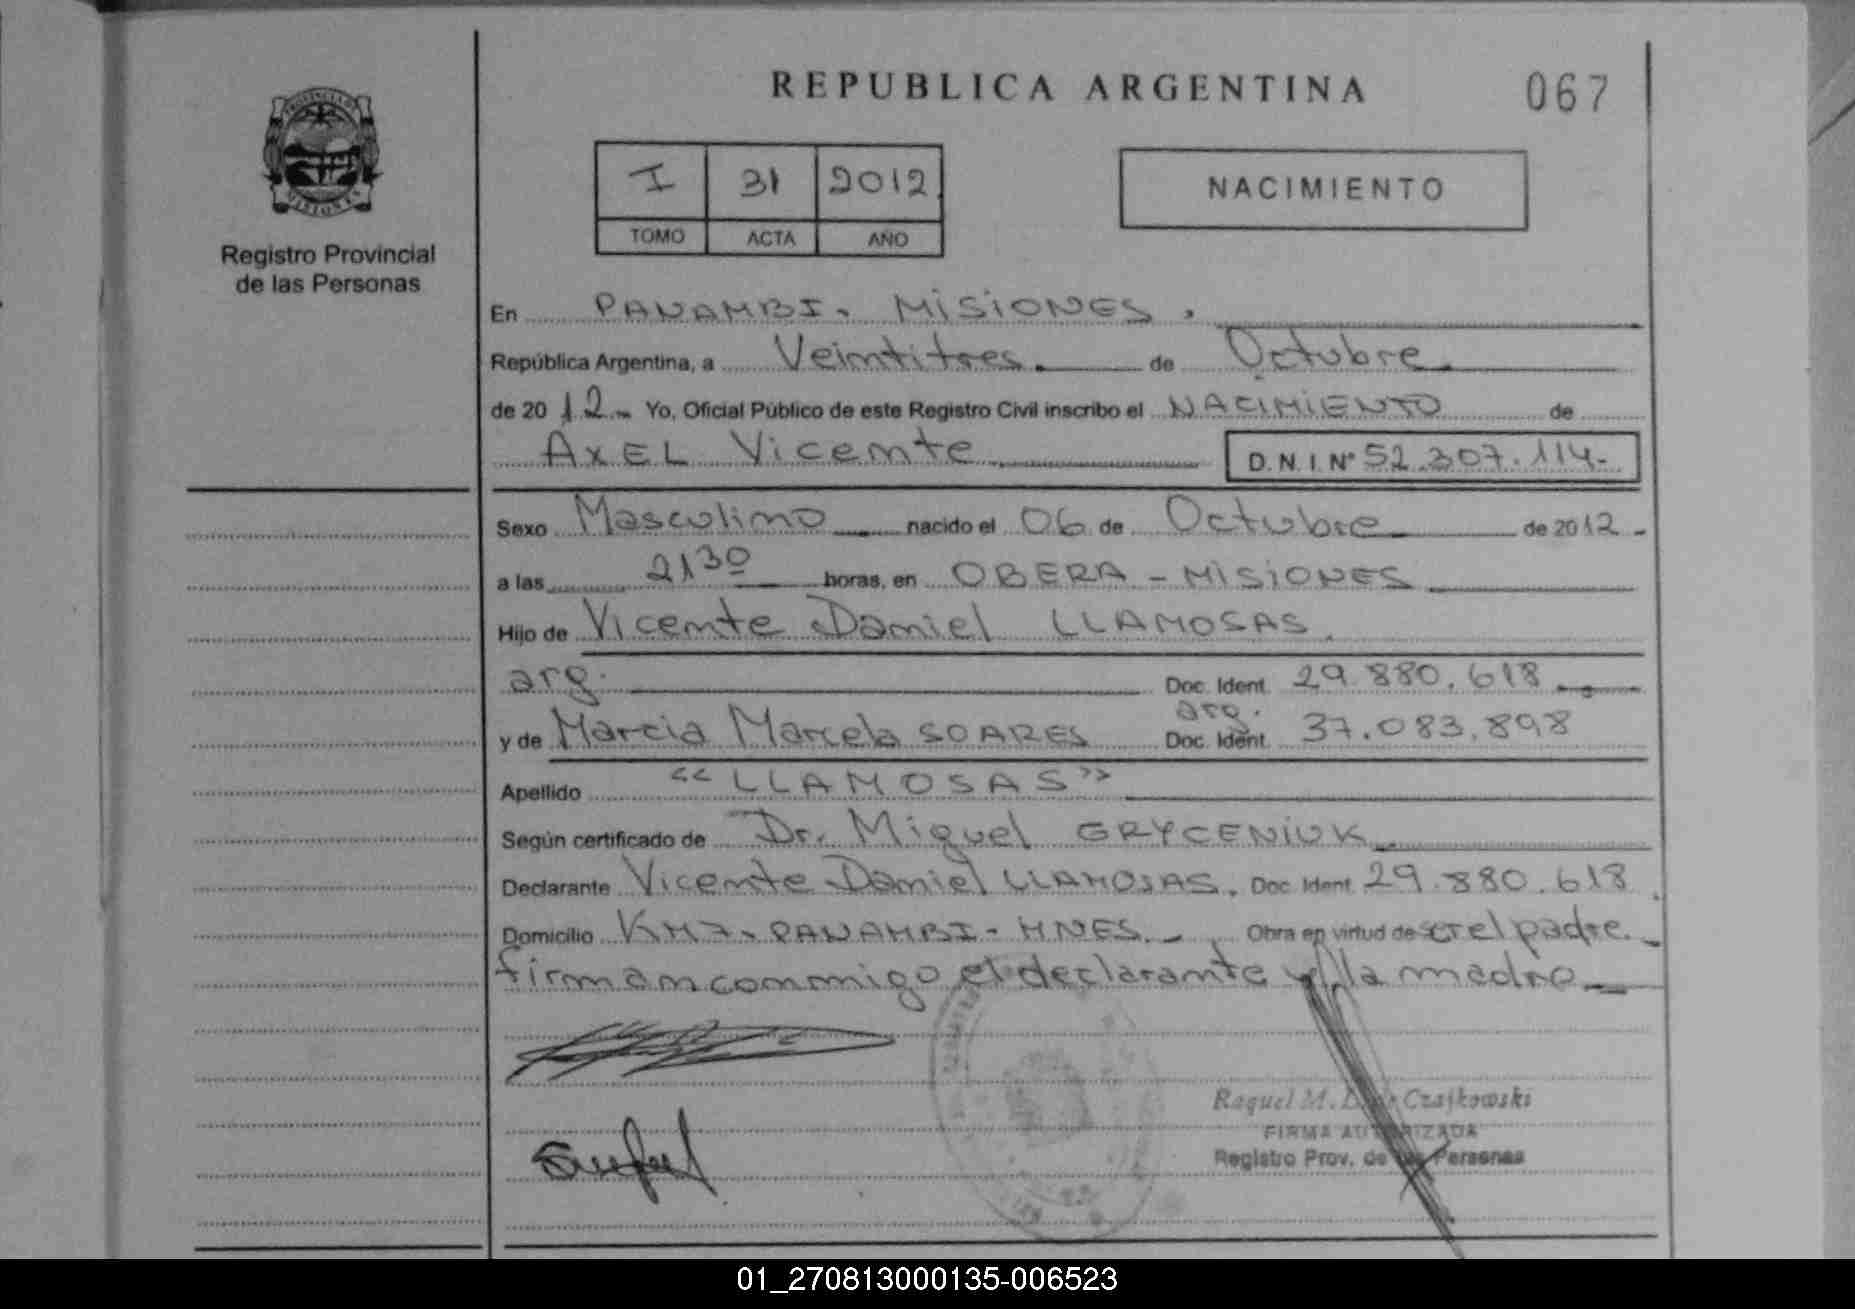 REPUBLICA ARGENTINA
067
PROVINCIA DE
MISIONES
Registro Provincial
de las Personas
I 31 2012
TOMO ACTA AÑO
NACIMIENTO
En PANAMBI. MISIONES.
República Argentina, a Veintitres de Octubre
de 2012 Yo, Oficial Público de este Registro Civil inscribo el NACIMIENTO de
AXEL Vicente D.N.I. Nº 52.307.114-
Sexo Masculino nacido el 06 de Octubre de 2012-
a las 21 30 horas, en OBERA - MISIONES
Hijo de Vicente Daniel LLAMOSAS.
arg. Doc. Ident. 29.880.618
arg.
y de Marcia Marcela SOARES Doc. Ident. 37.083.898
Apellido "LLAMOSAS"
Según certificado de Dr. Miguel GRYCENIUK
Declarante Vicente Daniel LLAMOSAS. Doc. Ident. 29.880.618
Domicilio KM7-PANAMBI-MNES. Obra en virtud de ser el padre.
firman conmigo el declarante y la madre
Raquel M. Czajkowski
FIRMA AUTORIZADA
Registro Prov. de las Personas
01_270813000135-006523